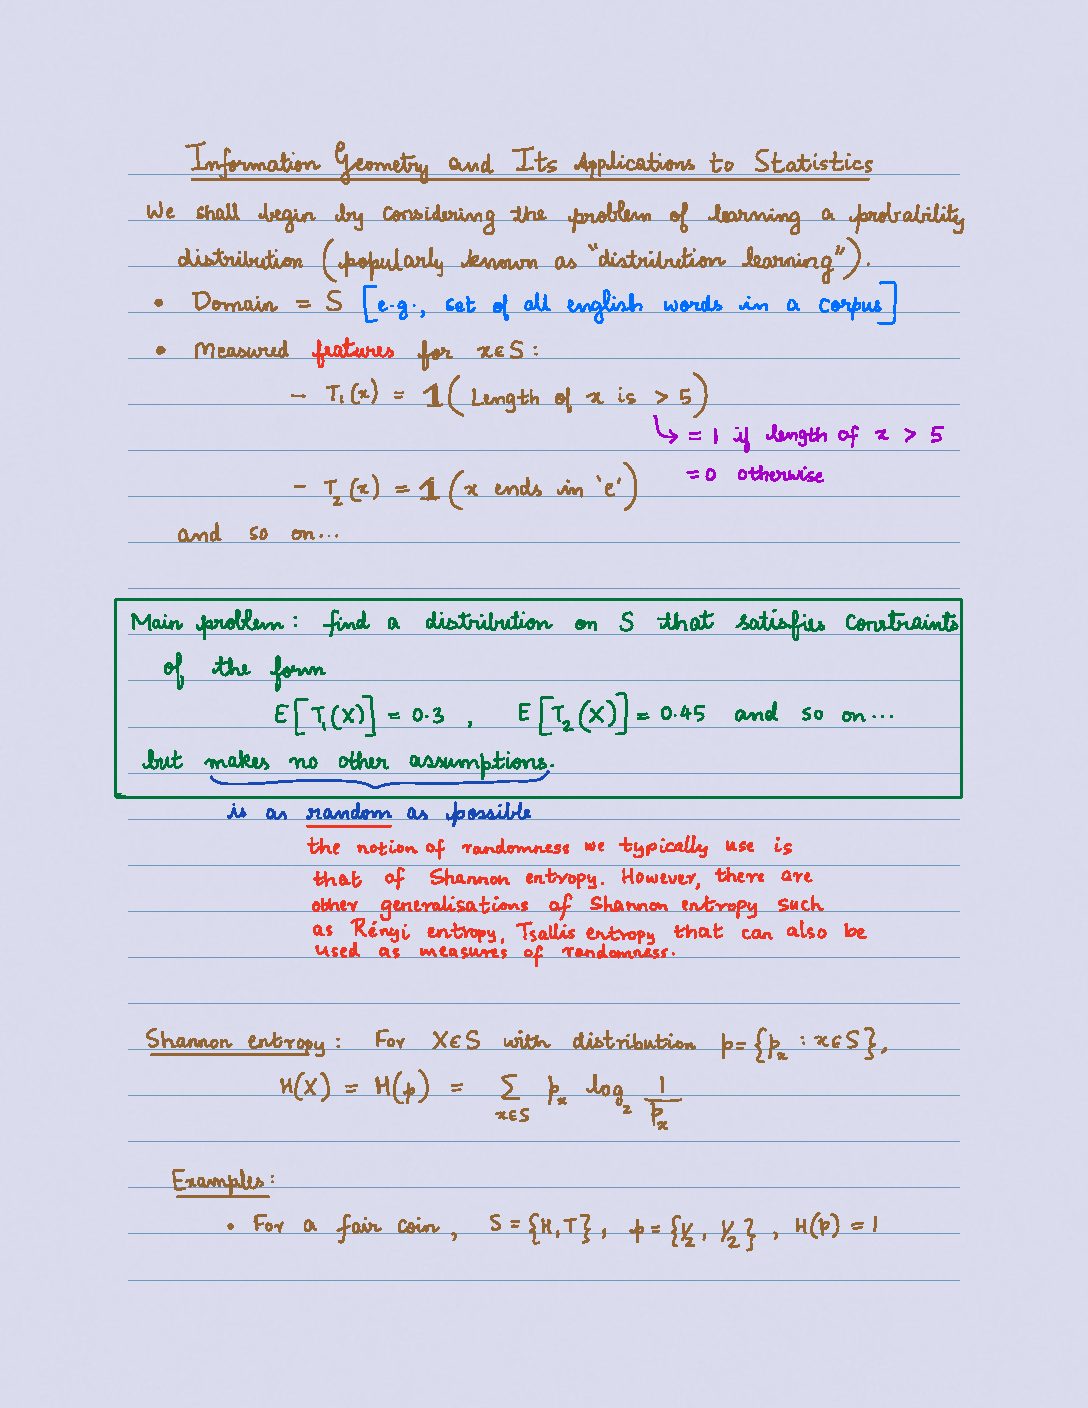 Information Geometry and Its Applications to Statistics
We shall begin by considering the problem of learning a probability
distribution (popularly known as "distribution learning").
• Domain = S [e.g., set of all english words in a corpus]
• Measured features for x∈S:
- T₁(x) = 1(Length of x is > 5)
↳ = 1 if length of x > 5
= 0 otherwise
- T₂(x) = 1(x ends in 'e')
and so on...
Main problem: find a distribution on S that satisfies constraints
of the form
E[T₁(X)] = 0.3 , E[T₂(X)] = 0.45 and so on...
but makes no other assumptions.
is as random as possible
the notion of randomness we typically use is
that of Shannon entropy. However, there are
other generalisations of Shannon entropy such
as Rényi entropy, Tsallis entropy that can also be
used as measures of randomness.
Shannon entropy: For X∈S with distribution p={pₓ : x∈S},
H(X) = H(p) = ∑_{x∈S} pₓ log₂ 1/pₓ
Examples:
• For a fair coin, S = {H,T}, p = {1/2, 1/2}, H(p) = 1